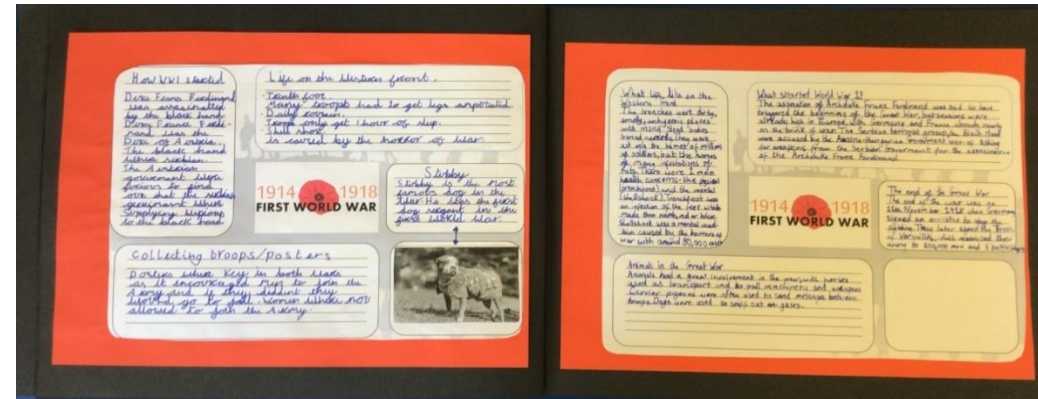 How WWI started
Duke Frans Ferdinand
was assasinally
by the black hand
Duke France Ferdi-
nand was the
Duke of Austria.
The black hand
where serbian.
The Austrian
government where
furious to find
out that the serbian
government where
supplying wepons
to the black hand
Life on the Western front.
Trenth foot.
Many troops had to get legs amputated
Daily routin.
Troops only get 1 hour of slep.
Shell shock
is caused by the horror of War.
1914 1918
FIRST WORLD WAR
Stubby
Stubby is the most
famous dog in the
War. He was the first
dog sergent in the
first World War.
Collecting troops/posters
Posters where key in both wars
as it encouraged men to join the
Army and if they didint they
would go to jail. Women where not
allowed to join the Army.
What was life on the
Western Front
The trenches were dirty,
smelly, unhygenic places
with mould. Dead bodies
buried nearby, they were
not only the homes of millions
of soldiers, but the homes
of many infestations of
rats. There were 2 main
health concerns - the physical
(trenchfoot) and the mental
(shellshock). Trenchfoot was
an infection of the feet which
made them numb, red or blue.
Shellshock was a mental condi-
tion caused by the horrors of
war with around 80,000 cases
What started World War 1?
The assination of Archduke Franz Ferdinand was said to have
triggered the beginning of the Great War, but tensions were
already high in Europe, with Germany and France already nearly
on the brink of war. The Serbian terrorist group, the Black Hand
was accused by the Austria-Hungarian government
for weapons from the Serbian Government for the assassination
of the Archduke Franz Ferdinand.
1914 1918
FIRST WORLD WAR
The end of the Great War
The end of the war was on
11th November 1918 when Germany
signed an armistice to stop the
fighting. They later signed the Treaty
of Versailles, which restricted their
army to 100,000 men and 6 battleships
Animals in the Great War
Animals had a great involvement in the war, with horses
used as transport and to pull machinery and weapons
Carrier pigeons were often used to send messages between
troops. Dogs were used to sniff out gases.